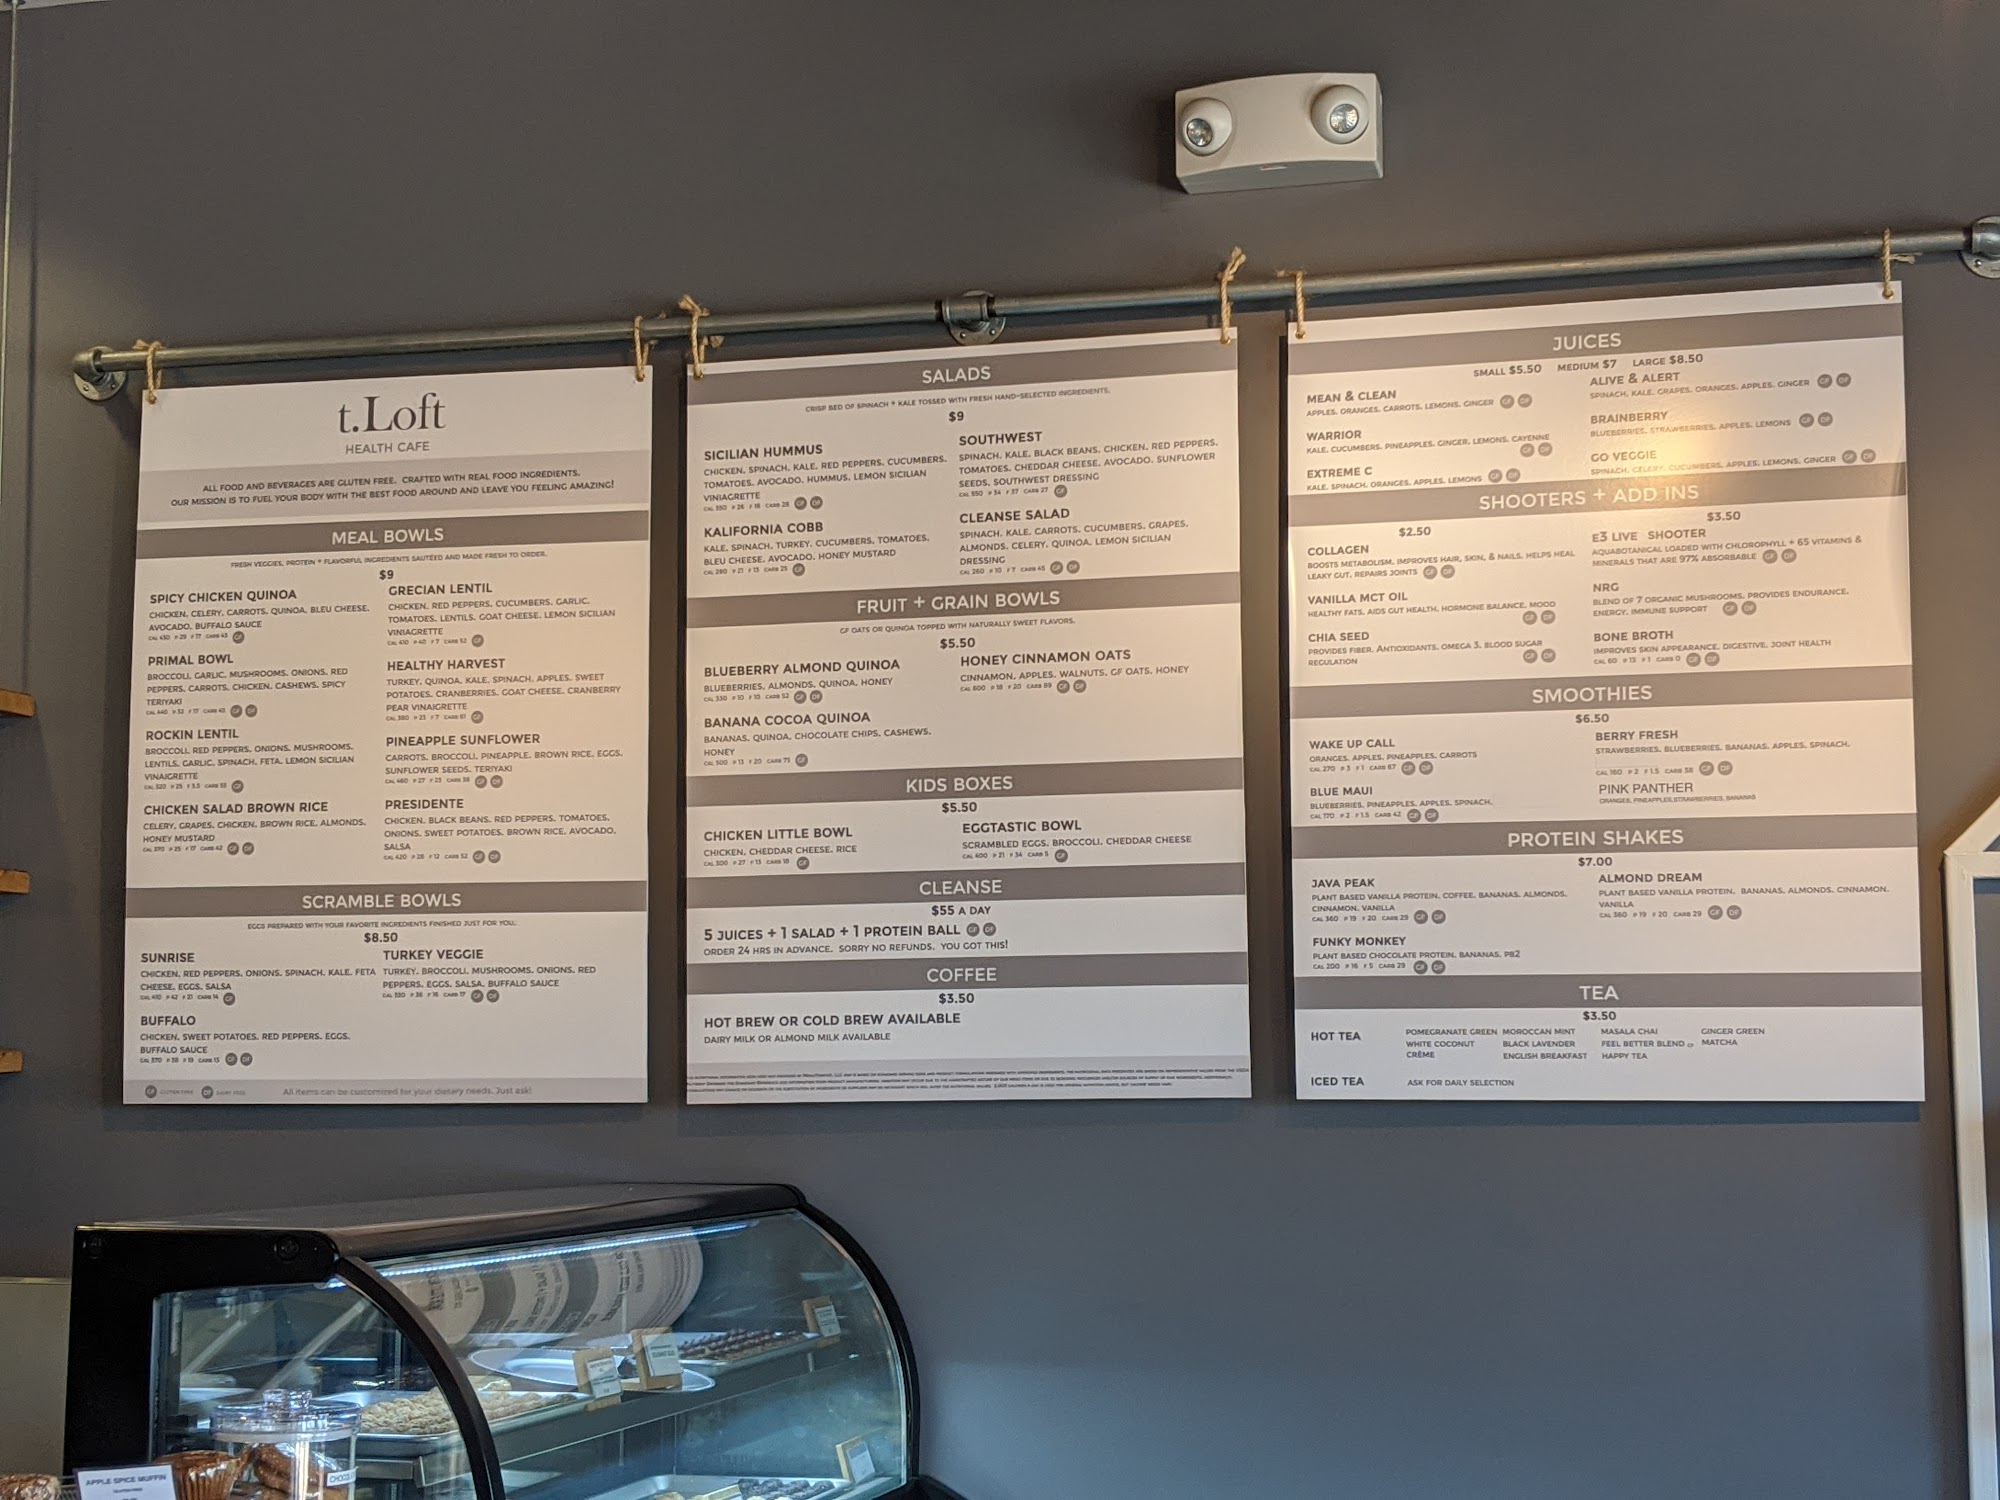 t.Loft
HEALTH CAFE
ALL FOOD AND BEVERAGES ARE GLUTEN FREE. CRAFTED WITH REAL FOOD INGREDIENTS.
OUR MISSION IS TO FUEL YOUR BODY WITH THE BEST FOOD AROUND AND LEAVE YOU FEELING AMAZING!
MEAL BOWLS
FRESH VEGGIES, PROTEIN + FLAVORFUL INGREDIENTS SAUTÉED AND MADE FRESH TO ORDER.
$9
SPICY CHICKEN QUINOA
CHICKEN, CELERY, CARROTS, QUINOA, BLEU CHEESE,
AVOCADO, BUFFALO SAUCE
CAL 430 P 29 F 17 CARB 43 GF
PRIMAL BOWL
BROCCOLI, GARLIC, MUSHROOMS, ONIONS, RED
PEPPERS, CARROTS, CHICKEN, CASHEWS, SPICY
TERIYAKI
CAL 440 P 32 F 17 CARB 42 GF DF
ROCKIN LENTIL
BROCCOLI, RED PEPPERS, ONIONS, MUSHROOMS,
LENTILS, GARLIC, SPINACH, FETA, LEMON SICILIAN
VINAIGRETTE
CAL 520 P 25 F 3.5 CARB 53 GF
CHICKEN SALAD BROWN RICE
CELERY, GRAPES, CHICKEN, BROWN RICE, ALMONDS,
HONEY MUSTARD
CAL 370 P 25 F 17 CARB 42 GF DF
GRECIAN LENTIL
CHICKEN, RED PEPPERS, CUCUMBERS, GARLIC,
TOMATOES, LENTILS, GOAT CHEESE, LEMON SICILIAN
VINIAGRETTE
CAL 410 P 40 F 7 CARB 52 GF
HEALTHY HARVEST
TURKEY, QUINOA, KALE, SPINACH, APPLES, SWEET
POTATOES, CRANBERRIES, GOAT CHEESE, CRANBERRY
PEAR VINAIGRETTE
CAL 380 P 23 F 7 CARB 61 GF
PINEAPPLE SUNFLOWER
CARROTS, BROCCOLI, PINEAPPLE, BROWN RICE, EGGS,
SUNFLOWER SEEDS, TERIYAKI
CAL 460 P 27 F 23 CARB 38 GF DF
PRESIDENTE
CHICKEN, BLACK BEANS, RED PEPPERS, TOMATOES,
ONIONS, SWEET POTATOES, BROWN RICE, AVOCADO,
SALSA
CAL 420 P 28 F 12 CARB 52 GF DF
SCRAMBLE BOWLS
EGGS PREPARED WITH YOUR FAVORITE INGREDIENTS FINISHED JUST FOR YOU.
$8.50
SUNRISE
CHICKEN, RED PEPPERS, ONIONS, SPINACH, KALE, FETA
CHEESE, EGGS, SALSA
CAL 410 P 42 F 21 CARB 14 GF
BUFFALO
CHICKEN, SWEET POTATOES, RED PEPPERS, EGGS,
BUFFALO SAUCE
CAL 370 P 38 F 19 CARB 13 GF DF
TURKEY VEGGIE
TURKEY, BROCCOLI, MUSHROOMS, ONIONS, RED
PEPPERS, EGGS, SALSA, BUFFALO SAUCE
CAL 330 P 36 F 16 CARB 17 GF DF
GF GLUTEN FREE DF DAIRY FREE All items can be customized for your dietary needs. Just ask!
SALADS
CRISP BED OF SPINACH + KALE TOSSED WITH FRESH HAND-SELECTED INGREDIENTS.
$9
SICILIAN HUMMUS
CHICKEN, SPINACH, KALE, RED PEPPERS, CUCUMBERS,
TOMATOES, AVOCADO, HUMMUS, LEMON SICILIAN
VINIAGRETTE
CAL 350 P 26 F 18 CARB 28 GF DF
KALIFORNIA COBB
KALE, SPINACH, TURKEY, CUCUMBERS, TOMATOES,
BLEU CHEESE, AVOCADO, HONEY MUSTARD
CAL 280 P 21 F 13 CARB 25 GF
SOUTHWEST
SPINACH, KALE, BLACK BEANS, CHICKEN, RED PEPPERS,
TOMATOES, CHEDDAR CHEESE, AVOCADO, SUNFLOWER
SEEDS, SOUTHWEST DRESSING
CAL 550 P 34 F 37 CARB 27 GF
CLEANSE SALAD
SPINACH, KALE, CARROTS, CUCUMBERS, GRAPES,
ALMONDS, CELERY, QUINOA, LEMON SICILIAN
DRESSING
CAL 260 P 10 F 7 CARB 45 GF DF
FRUIT + GRAIN BOWLS
GF OATS OR QUINOA TOPPED WITH NATURALLY SWEET FLAVORS.
$5.50
BLUEBERRY ALMOND QUINOA
BLUEBERRIES, ALMONDS, QUINOA, HONEY
CAL 330 P 10 F 10 CARB 52 GF DF
BANANA COCOA QUINOA
BANANAS, QUINOA, CHOCOLATE CHIPS, CASHEWS,
HONEY
CAL 500 P 13 F 20 CARB 75 GF
HONEY CINNAMON OATS
CINNAMON, APPLES, WALNUTS, GF OATS, HONEY
CAL 600 P 18 F 20 CARB 89 GF DF
KIDS BOXES
$5.50
CHICKEN LITTLE BOWL
CHICKEN, CHEDDAR CHEESE, RICE
CAL 300 P 27 F 13 CARB 18 GF
EGGTASTIC BOWL
SCRAMBLED EGGS, BROCCOLI, CHEDDAR CHEESE
CAL 400 P 21 F 34 CARB 5 GF
CLEANSE
$55 A DAY
5 JUICES + 1 SALAD + 1 PROTEIN BALL GF DF
ORDER 24 HRS IN ADVANCE. SORRY NO REFUNDS. YOU GOT THIS!
COFFEE
$3.50
HOT BREW OR COLD BREW AVAILABLE
DAIRY MILK OR ALMOND MILK AVAILABLE
JUICES
SMALL $5.50 MEDIUM $7 LARGE $8.50
MEAN & CLEAN
APPLES, ORANGES, CARROTS, LEMONS, GINGER GF DF
WARRIOR
KALE, CUCUMBERS, PINEAPPLES, GINGER, LEMONS, CAYENNE
GF DF
EXTREME C
KALE, SPINACH, ORANGES, APPLES, LEMONS GF DF
ALIVE & ALERT
SPINACH, KALE, GRAPES, ORANGES, APPLES, GINGER GF DF
BRAINBERRY
BLUEBERRIES, STRAWBERRIES, APPLES, LEMONS GF DF
GO VEGGIE
SPINACH, CELERY, CUCUMBERS, APPLES, LEMONS, GINGER GF DF
SHOOTERS + ADD INS
$2.50
COLLAGEN
BOOSTS METABOLISM, IMPROVES HAIR, SKIN, & NAILS, HELPS HEAL
LEAKY GUT, REPAIRS JOINTS GF DF
VANILLA MCT OIL
HEALTHY FATS, AIDS GUT HEALTH, HORMONE BALANCE, MOOD
GF DF
CHIA SEED
PROVIDES FIBER, ANTIOXIDANTS, OMEGA 3, BLOOD SUGAR
REGULATION GF DF
$3.50
E3 LIVE SHOOTER
AQUABOTANICAL LOADED WITH CHLOROPHYLL + 65 VITAMINS &
MINERALS THAT ARE 97% ABSORBABLE GF DF
NRG
BLEND OF 7 ORGANIC MUSHROOMS, PROVIDES ENDURANCE,
ENERGY, IMMUNE SUPPORT GF DF
BONE BROTH
IMPROVES SKIN APPEARANCE, DIGESTIVE, JOINT HEALTH
CAL 60 P 13 F 1 CARB 0 GF DF
SMOOTHIES
$6.50
WAKE UP CALL
ORANGES, APPLES, PINEAPPLES, CARROTS
CAL 270 P 3 F 1 CARB 67 GF DF
BLUE MAUI
BLUEBERRIES, PINEAPPLES, APPLES, SPINACH,
CAL 170 P 2 F 1.5 CARB 42 GF DF
BERRY FRESH
STRAWBERRIES, BLUEBERRIES, BANANAS, APPLES, SPINACH,
CAL 160 P 2 F 1.5 CARB 38 GF DF
PINK PANTHER
ORANGES, PINEAPPLES, STRAWBERRIES, BANANAS
PROTEIN SHAKES
$7.00
JAVA PEAK
PLANT BASED VANILLA PROTEIN, COFFEE, BANANAS, ALMONDS,
CINNAMON, VANILLA
CAL 360 P 19 F 20 CARB 29 GF DF
FUNKY MONKEY
PLANT BASED CHOCOLATE PROTEIN, BANANAS, PB2
CAL 200 P 16 F 5 CARB 29 GF DF
ALMOND DREAM
PLANT BASED VANILLA PROTEIN, BANANAS, ALMONDS, CINNAMON,
VANILLA
CAL 360 P 19 F 20 CARB 29 GF DF
TEA
$3.50
HOT TEA
POMEGRANATE GREEN MOROCCAN MINT MASALA CHAI GINGER GREEN
WHITE COCONUT BLACK LAVENDER FEEL BETTER BLEND MATCHA
CRÈME ENGLISH BREAKFAST HAPPY TEA
ICED TEA ASK FOR DAILY SELECTION
APPLE SPICE MUFFIN